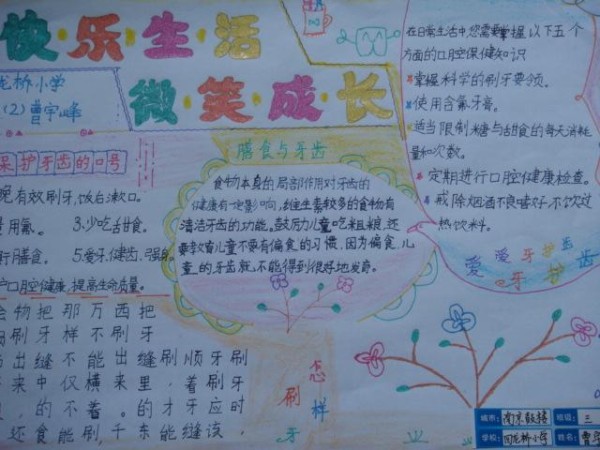 快乐生活
微笑成长
龙桥小学
(2)曹宇峰
保护牙齿的口号
晚有效刷牙,饭后漱口。
用氟。 3.少吃甜食。
行膳食。 5.爱牙,健齿,强身。
护口腔健康,提高生命质量。
膳食与牙齿
食物本身的局部作用对牙齿的
健康有一定影响,纤维素较多的食物有
清洁牙齿的功能。鼓励儿童吃粗粮,还
要教育儿童不要有偏食的习惯,因为偏食儿
童的牙齿就不能得到很好地发育。
在日常生活中,您需要掌握以下五个
方面的口腔保健知识
掌握科学的刷牙要领。
使用含氟牙膏。
适当限制糖与甜食的每天消耗
量和次数。
定期进行口腔健康检查。
戒除烟酒不良嗜好,不饮过
热饮料。
爱爱牙护齿
牙护齿
物把那万西把
刷牙样不刷牙
出缝不能出缝刷顺牙刷
来中仅横来里,着刷牙
,的不着。的才牙应时
还食能刷,千东能缝该,
怎样
刷
牙
城市:南京鼓楼 班级:三
学校:回龙桥小学 姓名:曹宇